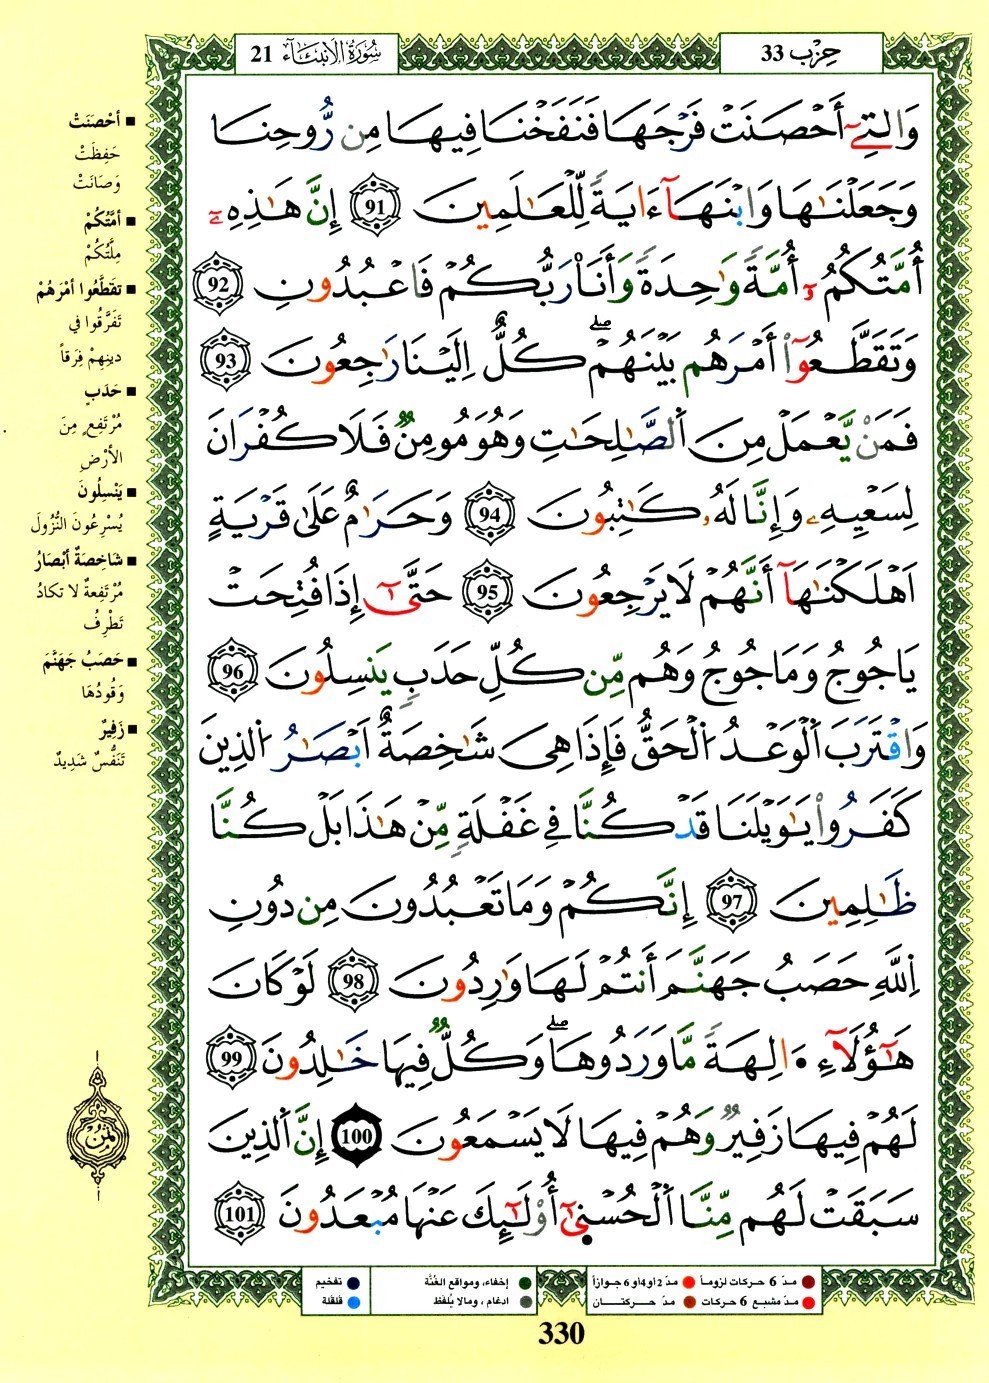 سُورَةُ الأَنْبِيَاءِ 21
حِزْب 33
وَالتِےٓ أَحْصَنَتْ فَرْجَهَا فَنَفَخْنَا فِيهَا مِن رُّوحِنَا
وَجَعَلْنَٰهَا وَابْنَهَآ ءَايَةٗ لِّلْعَٰلَمِينَ 91 إِنَّ هَٰذِهِۦٓ
أُمَّتُكُمُۥٓ أُمَّةٗ وَٰحِدَةٗ وَأَنَا۠ رَبُّكُمْ فَاعْبُدُونِ 92
وَتَقَطَّعُوٓاْ أَمْرَهُم بَيْنَهُمْۖ كُلٌّ اِلَيْنَا رَٰجِعُونَ 93
فَمَنْ يَّعْمَلْ مِنَ اَ۬لصَّٰلِحَٰتِ وَهُوَ مُومِنٞ فَلَا كُفْرَانَ
لِسَعْيِهِۦ وَإِنَّا لَهُۥ كَٰتِبُونَ 94 وَحَرَٰمٌ عَلَىٰ قَرْيَةٍ
اَهْلَكْنَٰهَآ أَنَّهُمْ لَا يَرْجِعُونَ 95 حَتَّىٰٓ إِذَا فُتِحَتْ
يَاجُوجُ وَمَاجُوجُ وَهُم مِّن كُلِّ حَدَبٖ يَنسِلُونَ 96
وَاقْتَرَبَ اَ۬لْوَعْدُ اُ۬لْحَقُّ فَإِذَا هِىَ شَٰخِصَةٌ اَبْصَٰرُ اُ۬لذِينَ
كَفَرُواْ يَٰوَيْلَنَا قَدْ كُنَّا فِے غَفْلَةٖ مِّنْ هَٰذَا بَلْ كُنَّا
ظَٰلِمِينَ 97 إِنَّكُمْ وَمَا تَعْبُدُونَ مِن دُونِ
اِ۬للَّهِ حَصَبُ جَهَنَّمَ أَنتُمْ لَهَا وَٰرِدُونَ 98 لَوْ كَانَ
هَٰٓؤُلَآءِ ا۬لِهَةٗ مَّا وَرَدُوهَاۖ وَكُلٌّ فِيهَا خَٰلِدُونَ 99
لَهُمْ فِيهَا زَفِيرٞ وَهُمْ فِيهَا لَا يَسْمَعُونَ 100 إِنَّ اَ۬لذِينَ
سَبَقَتْ لَهُم مِّنَّا اَ۬لْحُسْن۪ىٰٓ أُوْلَٰٓئِكَ عَنْهَا مُبْعَدُونَ 101
■ أحْصَنَتْ
حَفِظَتْ
وَصَانَتْ
■ أمَّتُكُمْ
مِلَّتُكُمْ
■ تقَطَّعُوا أمْرَهُمْ
تَفَرَّقُوا في
دينِهِمْ فِرَقاً
■ حَدَبٍ
مُرْتَفِعٍ مِنَ
الأرْضِ
■ يَنْسِلُونَ
يُسْرِعُونَ النُّزُولَ
■ شَاخِصَةٌ أبْصَارُ
مُرْتَفِعةٌ لا تكادُ
تَطْرِفُ
■ حَصَبُ جَهَنَّمَ
وَقُودُهَا
■ زَفِيرٌ
تَنَفُّسٌ شَدِيدٌ
● مدّ 6 حركات لزوماً ● مدّ 2 أو 4 أو 6 جوازاً
● مدّ مشبع 6 حركات ● مدّ حركتــان
● إخفاء، ومواقع الغُنَّة
● ادغام ، ومالا يُلفظ
● تفخيم
● قلقلة
330